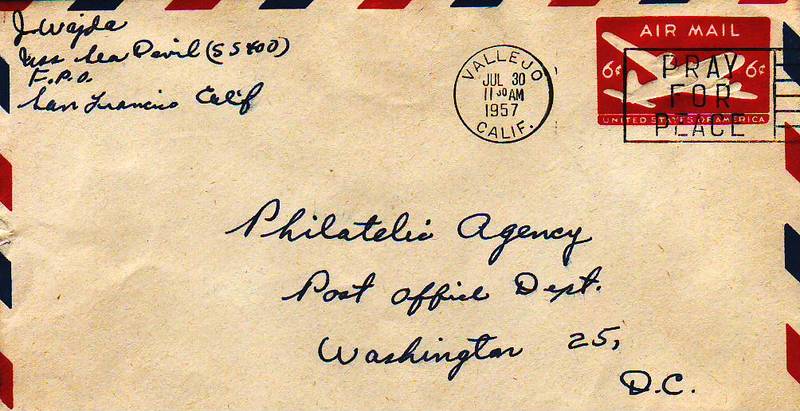 J. Wajda
USS Sea Devil (SS400)
F.P.O.
San Francisco Calif
VALLEJO
JUL 30
11 30 AM
1957
CALIF.
AIR MAIL
6¢ 6¢
UNITED STATES OF AMERICA
PRAY
FOR
PEACE
Philatelic Agency
Post Office Dept.
Washington 25,
D.C.